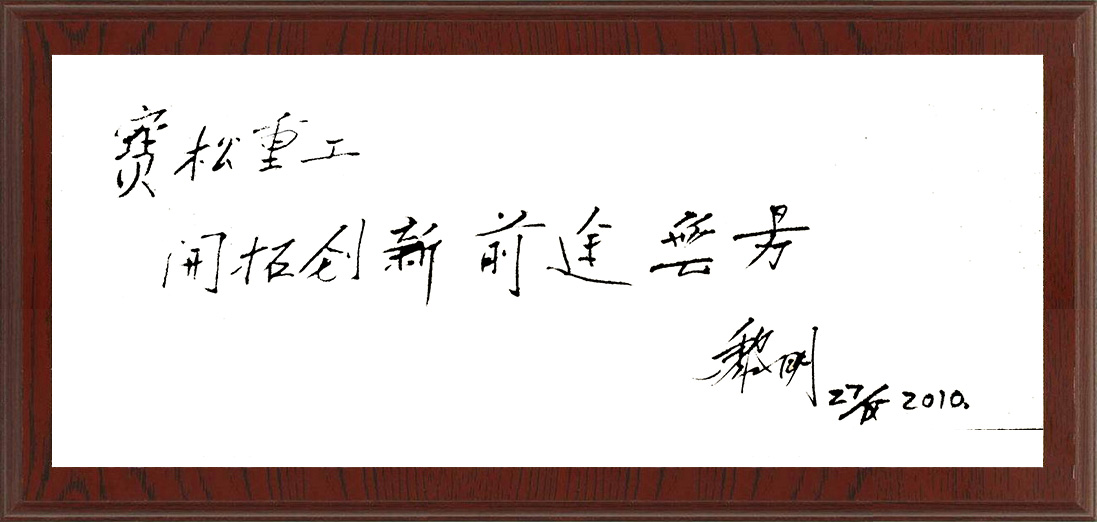 寶松重工
開拓创新 前途無量
黎明 27/8 2010.